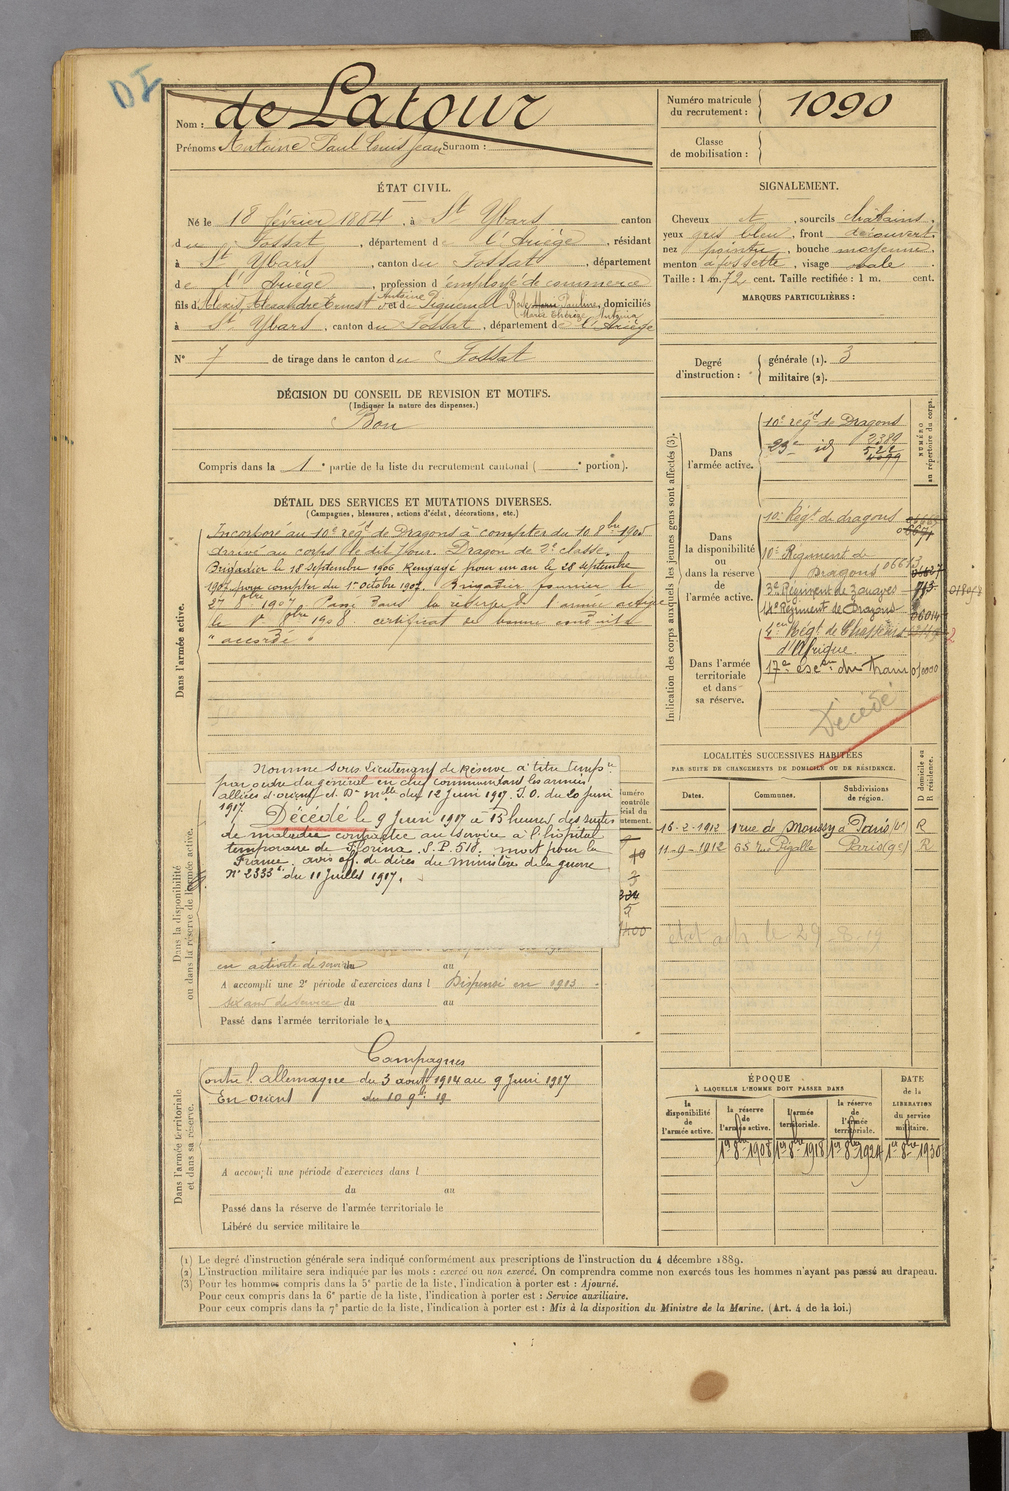 DI
Nom : de Latour
Prénoms Antoine Paul Louis Jean Surnom :
Numéro matricule du recrutement : 1090
Classe de mobilisation :
ÉTAT CIVIL.
Né le 18 février 1884, à St Ybars canton
du Fossat, département de l'Ariège, résidant
à St Ybars, canton du Fossat, département
de l'Ariège, profession d'employé de commerce
fils d'Alexis, Alexandre Ernest Antoine et de Piquemal Rose Marie Pauline, domiciliés
Marie Thérèze Antonia
à St Ybars, canton du Fossat, département de l'Ariège
N° 7 de tirage dans le canton du Fossat
DÉCISION DU CONSEIL DE REVISION ET MOTIFS.
(Indiquer la nature des dispenses.)
Bon
Compris dans la 1e partie de la liste du recrutement cantonal ( e portion).
SIGNALEMENT.
Cheveux et, sourcils châtains.
yeux gris bleu, front découvert.
nez pointu, bouche moyenne.
menton à fossette, visage ovale
Taille : 1 m. 72 cent. Taille rectifiée : 1 m. cent.
MARQUES PARTICULIÈRES :
Degré d'instruction :
générale (1). 3
militaire (2).
DÉTAIL DES SERVICES ET MUTATIONS DIVERSES.
(Campagnes, blessures, actions d'éclat, décorations, etc.)
Dans l'armée active.
Incorporé au 10e régt de Dragons à compter du 10 8bre 1905
arrivé au corps le dit jour. Dragon de 2e classe.
Brigadier le 18 Septembre 1906 Rengagé pour un an le 28 septembre
1907 pour compter du 1er Octobre 1907. Brigadier fourrier le
27 1907 Passé dans la réserve de l'armée active
le 1er 1908. certificat de bonne conduite
"accordé"
Nommé Sous Lieutenant de Réserve à titre tempre
par ordre du général en chef commandant les armées
alliées d'orient et Don mlle du 12 Juin 1917. J.O. du 20 Juin
1917.
Décédé le 9 Juin 1917 à 15 heures des suites
de maladie contractée au service à l'hôpital
temporaire de Florina. S.P. 510. mort pour la
France. avis off. de décès du ministère de la guerre
N° 2333 du 11 Juillet 1917.
Dans la disponibilité ou dans la réserve de l'armée active.
en activité de service du au
A accompli une 2e période d'exercices dans l Dispensé en 1913
du au
Passé dans l'armée territoriale le
Campagnes
Contre l'allemagne du 3 août 1914 au 9 Juin 1917
En orient
Dans l'armée territoriale et dans sa réserve.
A accompli une période d'exercices dans l
du au
Passé dans la réserve de l'armée territoriale le
Libéré du service militaire le
Indication des corps auxquels les jeunes gens sont affectés (3).
NUMÉRO au répertoire du corps.
Dans l'armée active.
10e régt de Dragons 2389
23e id 522
Dans la disponibilité ou dans la réserve de l'armée active.
10e Régt de dragons
10e Régiment de
Dragons
3e Régiment de zouaves
14e Régiment de Dragons
Dans l'armée territoriale et dans sa réserve.
1er Régt de Chasseurs
d'Afrique.
17e esc on du train
Décédé
LOCALITÉS SUCCESSIVES HABITÉES
PAR SUITE DE CHANGEMENTS DE DOMICILE OU DE RÉSIDENCE.
Dates. Communes. Subdivisions de région. D domicile ou R résidence.
16-2-1912 1 rue de Moussy à Paris (4e) R
11-9-1912 65 rue Pigalle Paris (9e) R
ÉPOQUE
À LAQUELLE L'HOMME DOIT PASSER DANS
la disponibilité de l'armée active. la réserve de l'armée active. l'armée territoriale. la réserve de l'armée territoriale. DATE de la LIBÉRATION du service militaire.
1er 8bre 1908 1er 8bre 1918 1er 8bre 1924 1er 8bre 1930
(1) Le degré d'instruction générale sera indiqué conformément aux prescriptions de l'instruction du 4 décembre 1889.
(2) L'instruction militaire sera indiquée par les mots : exercé ou non exercé. On comprendra comme non exercés tous les hommes n'ayant pas passé au drapeau.
(3) Pour les hommes compris dans la 5e partie de la liste, l'indication à porter est : Ajourné.
Pour ceux compris dans la 6e partie de la liste, l'indication à porter est : Service auxiliaire.
Pour ceux compris dans la 7e partie de la liste, l'indication à porter est : Mis à la disposition du Ministre de la Marine. (Art. 4 de la loi.)